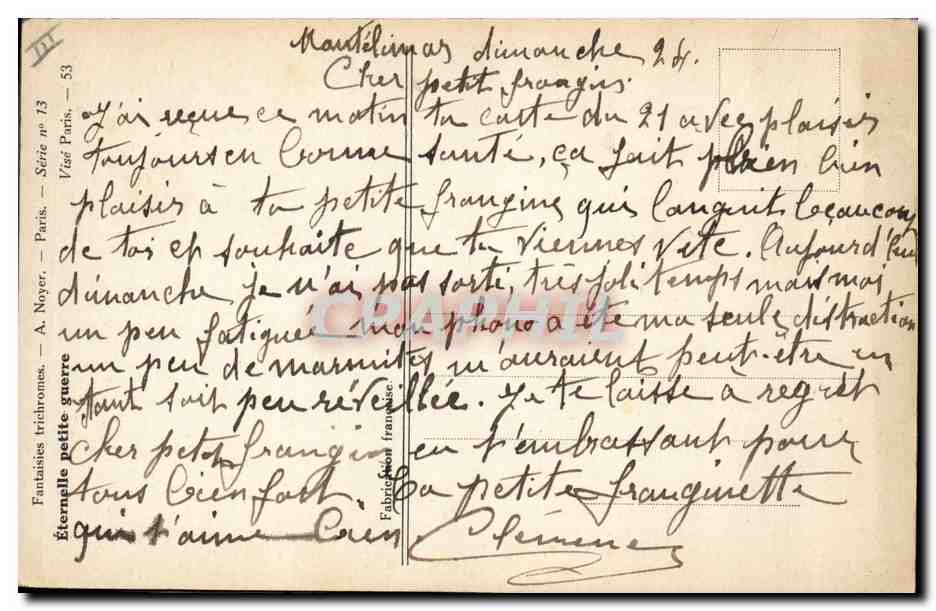 III
Montélimar dimanche 24.
Cher petit frangin.
J'ai reçue ce matin ta carte du 21 avec plaisir
toujours en bonne santé, ça fait bien
plaisir à ta petite frangine qui languit beaucoup
de toi et souhaite que tu viennes vite. Aujourd'hui
dimanche je n'ai pas sorti, très joli temps mais moi
un peu fatiguée mon phono a été ma seule distraction
un peu de marmites m'auraient peut-être un
tant soit peu réveillée. Je te laisse à regret
Cher petit frangin en t'embrassant pour
tous bien fort. Ta petite franginette
qui t'aime bien Clémence
Fantaisies trichromes. — A. Noyer. — Paris. — Série n° 13
Éternelle petite guerre Visé Paris. — 53
Fabrication française
CPAPHIL